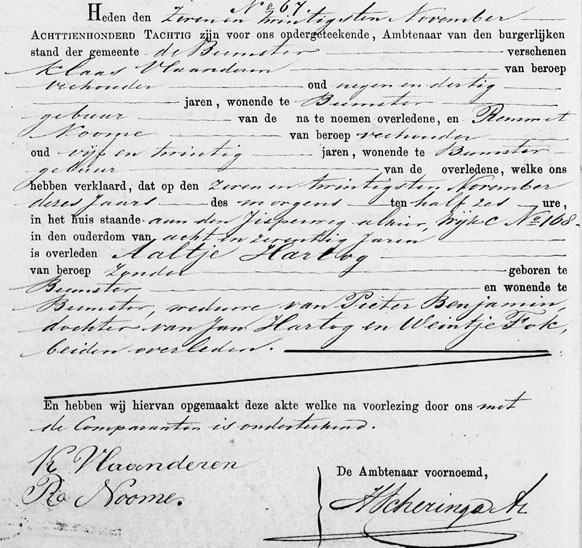 No 67.
Heden den Zeven en twintigsten November
ACHTTIENHONDERD TACHTIG zijn voor ons ondergeteekende, Ambtenaar van den burgerlijken
stand der gemeente de Beemster verschenen
Klaas Vlaanderen van beroep
veehouder oud negen en dertig
jaren, wonende te Beemster
gebuur van de na te noemen overledene, en Remmet
Noome van beroep veehouder
oud vijf en twintig jaren, wonende te Beemster
gebuur van de overledene, welke ons
hebben verklaard, dat op den Zeven en twintigsten November
dezes jaars des morgens ten half zes ure,
in het huis staande aan den Jisperweg alhier, Wijk C No 108
in den ouderdom van acht en zeventig jaren
is overleden Aaltje Hartog
van beroep Zonder geboren te
Beemster en wonende te
Beemster, weduwe van Pieter Benjamin,
dochter van Jan Hartog en Weintje Fok,
beiden overleden.
En hebben wij hiervan opgemaakt deze akte welke na voorlezing door ons met
de Comparanten is onderteekend.
K Vlaanderen
Ro Noome.
De Ambtenaar voornoemd,
HScheringa Az